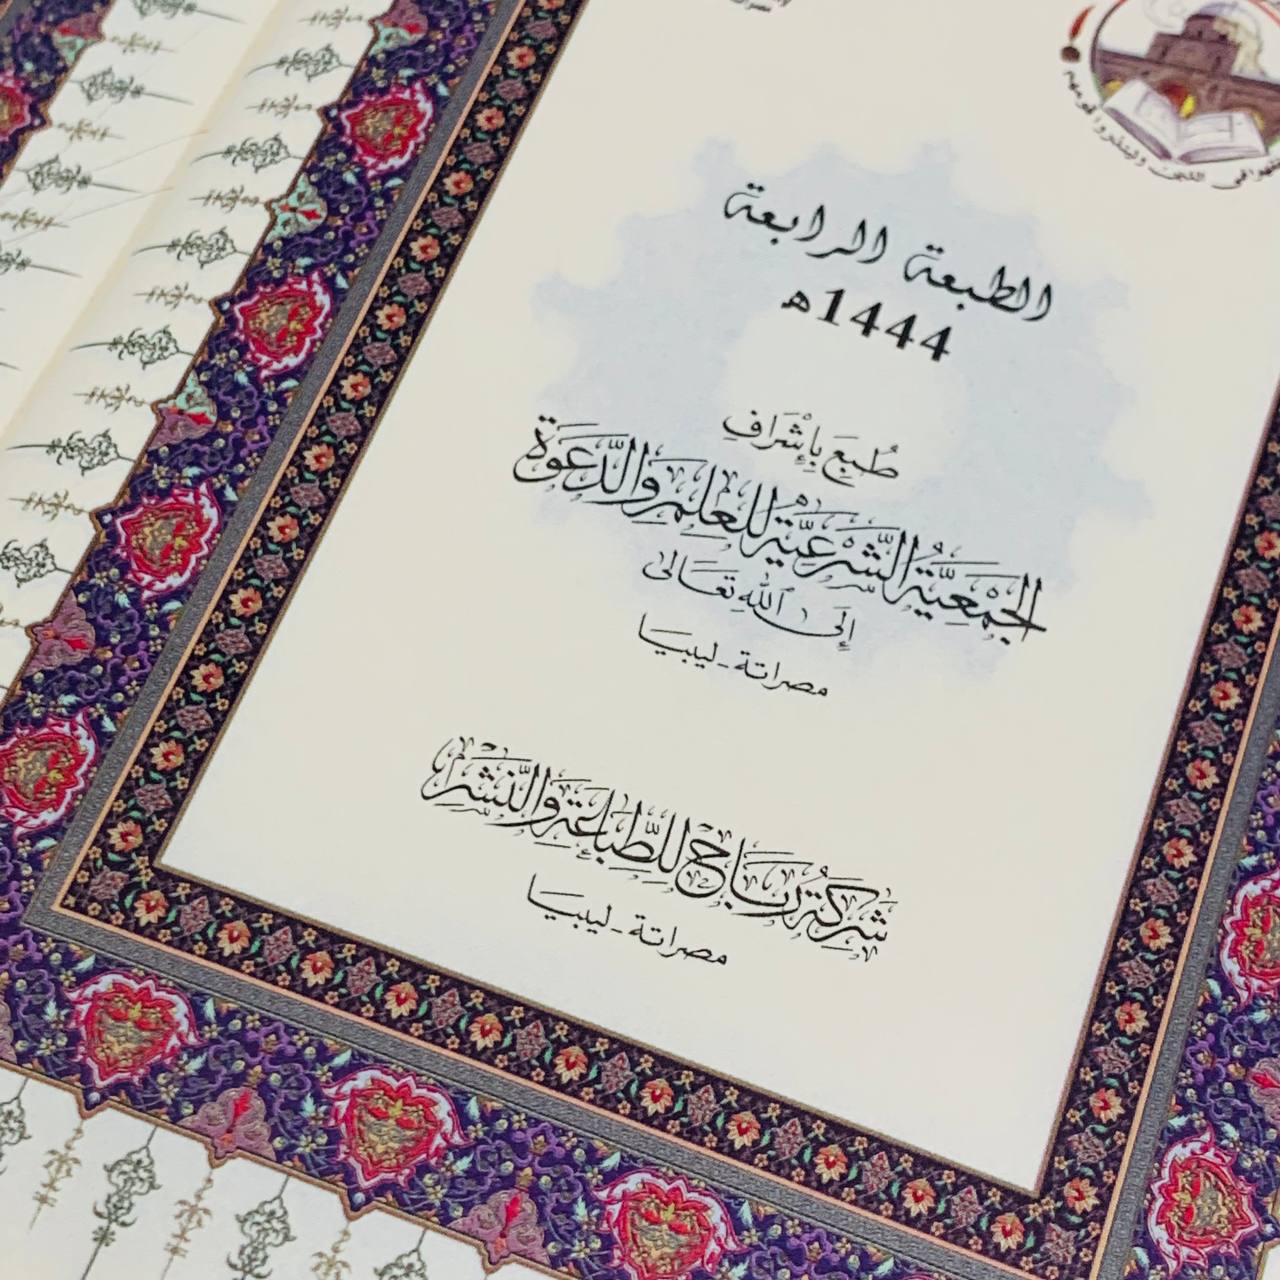 الطبعة الرابعة
1444ه
طُبِعَ بِإِشْرَافِ
الجَمْعِيَّةُ الشَّرْعِيَّةُ لِلْعِلْمِ وَالدَّعْوَةِ
إِلَى اللهِ تَعَالَى
مصراتة - ليبيا
شَرِكَةُ رَبَاحْ لِلطِّبَاعَةِ وَالنَّشْرِ
مصراتة - ليبيا